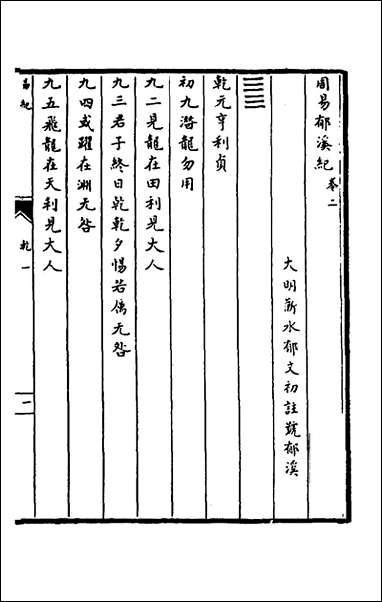 周易郁溪紀卷二
大明蘄水郁文初註號郁溪
乾元亨利貞
初九潛龍勿用
九二見龍在田利見大人
九三君子終日乾乾夕惕若厲无咎
九四或躍在淵无咎
九五飛龍在天利見大人
易紀
乾一